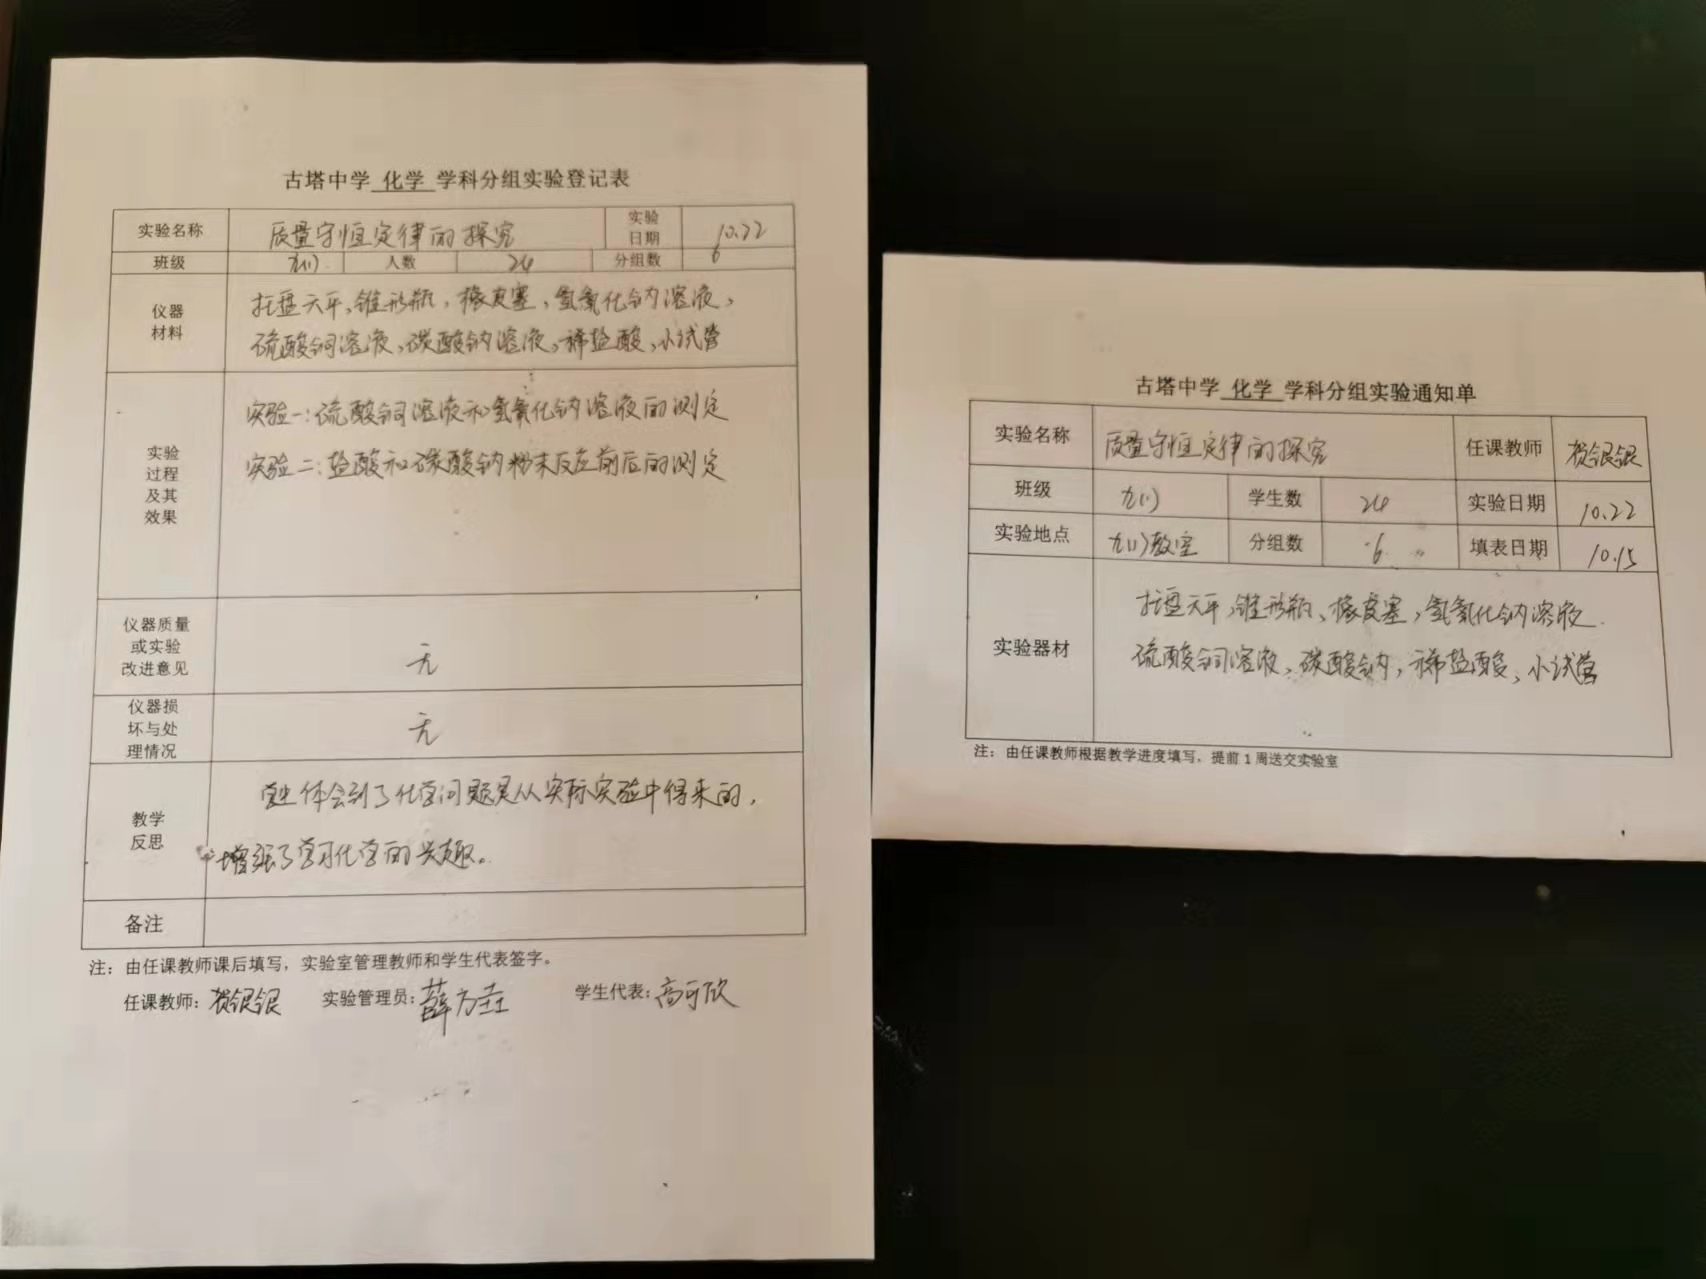 古塔中学 化学 学科分组实验登记表
实验名称 质量守恒定律的探究 实验日期 10.22
班级 九(1) 人数 24 分组数 6
仪器材料
托盘天平,锥形瓶,橡皮塞,氢氧化钠溶液,
硫酸铜溶液,碳酸钠溶液,稀盐酸,小试管
实验过程及其效果
实验一:硫酸铜溶液和氢氧化钠溶液的测定
实验二:盐酸和碳酸钠粉末反应前后的测定
仪器质量或实验改进意见 无
仪器损坏与处理情况 无
教学反思
学生体会到了化学问题是从实际实验中得来的,
增强了学习化学的兴趣。
备注
注:由任课教师课后填写,实验室管理教师和学生代表签字。
任课教师:贺银银 实验管理员:薛方 学生代表:高可欣
古塔中学 化学 学科分组实验通知单
实验名称 质量守恒定律的探究 任课教师 贺银银
班级 九(1) 学生数 24 实验日期 10.22
实验地点 九(1)教室 分组数 6 填表日期 10.15
实验器材
托盘天平,锥形瓶、橡皮塞,氢氧化钠溶液
硫酸铜溶液,碳酸钠,稀盐酸,小试管
注:由任课教师根据教学进度填写,提前1周送交实验室